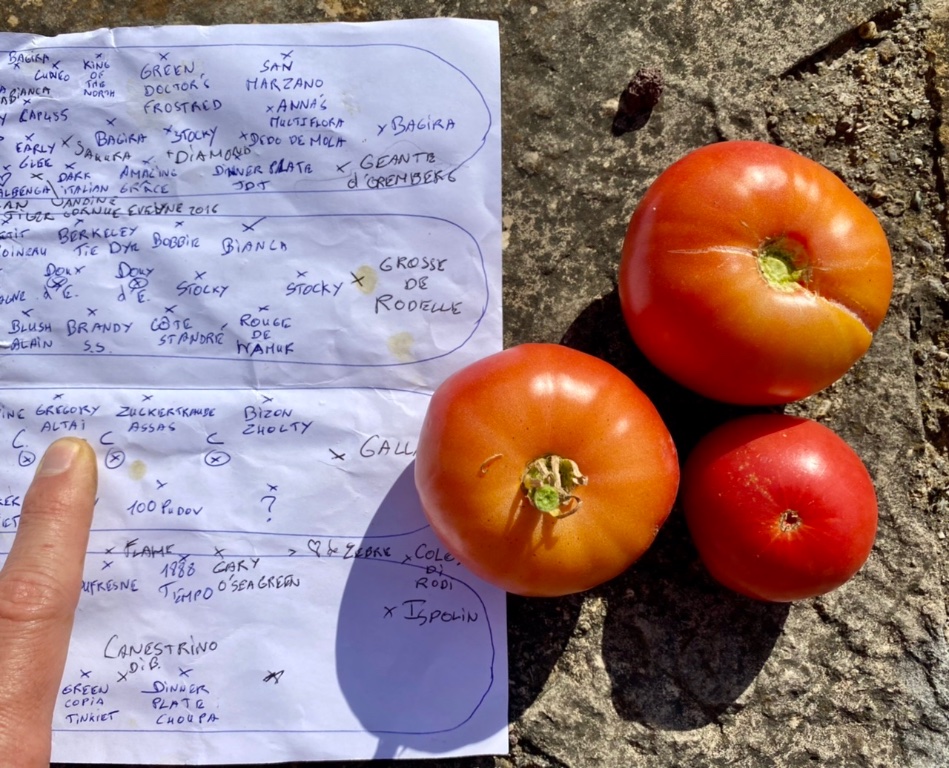 BAGIRA
CUNEO
KING
OF
THE
NORTH
GREEN
DOCTOR'S
FROSTRED
SAN
MARZANO
BIANCA
ANNA'S
MULTIFLORA
EARLY
GLEE
SAKURA
BAGIRA
STOCKY
DIAMOND
DEDO DE MOLA
BAGIRA
ALBENGA
DARK
ITALIAN
AMAZING
GRACE
DINNER PLATE
JDT
GEANTE
d'OREMBERG
ANDINE
CORNUE EVELYNE 2016
BERKELEY
TIE DYE
BOBBIE
BIANCA
DOUX
d'E.
DOUX
d'E.
STOCKY
STOCKY
GROSSE
DE
RODELLE
BLUSH
ALAIN
BRANDY
S.S.
CÔTE
ST ANDRÉ
ROUGE
DE
NAMUR
GREGORY
ALTAÏ
ZUCKERTRAUBE
ASSAS
BIZON
ZHOLTY
C
C
C
GALLA
100 PUDOV
?
FLAME
UFRESNE
1888
TEMPO
GARY
O'SEA GREEN
♡ de ZEBRE
COLO
DI
RODI
ISPOLIN
CANESTRINO
DiB.
GREEN
COPIA
TINKIET
DINNER
PLATE
CHOUPA